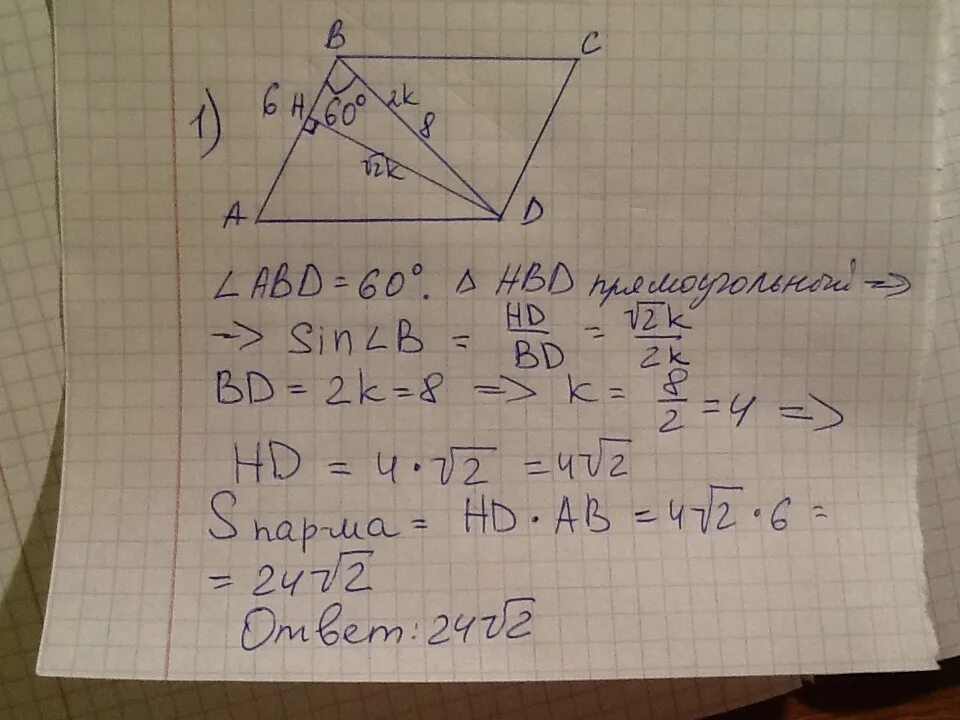 B
C
6 H 60° 2k
1) 8
√2k
A D
∠ABD = 60°. Δ HBD прямоугольный =>
=> Sin∠B = HD/BD = √2k/2k
BD = 2k = 8 => k = 8/2 = 4 =>
HD = 4 · √2 = 4√2
Sпар-ма = HD · AB = 4√2 · 6 =
= 24√2
Ответ: 24√2